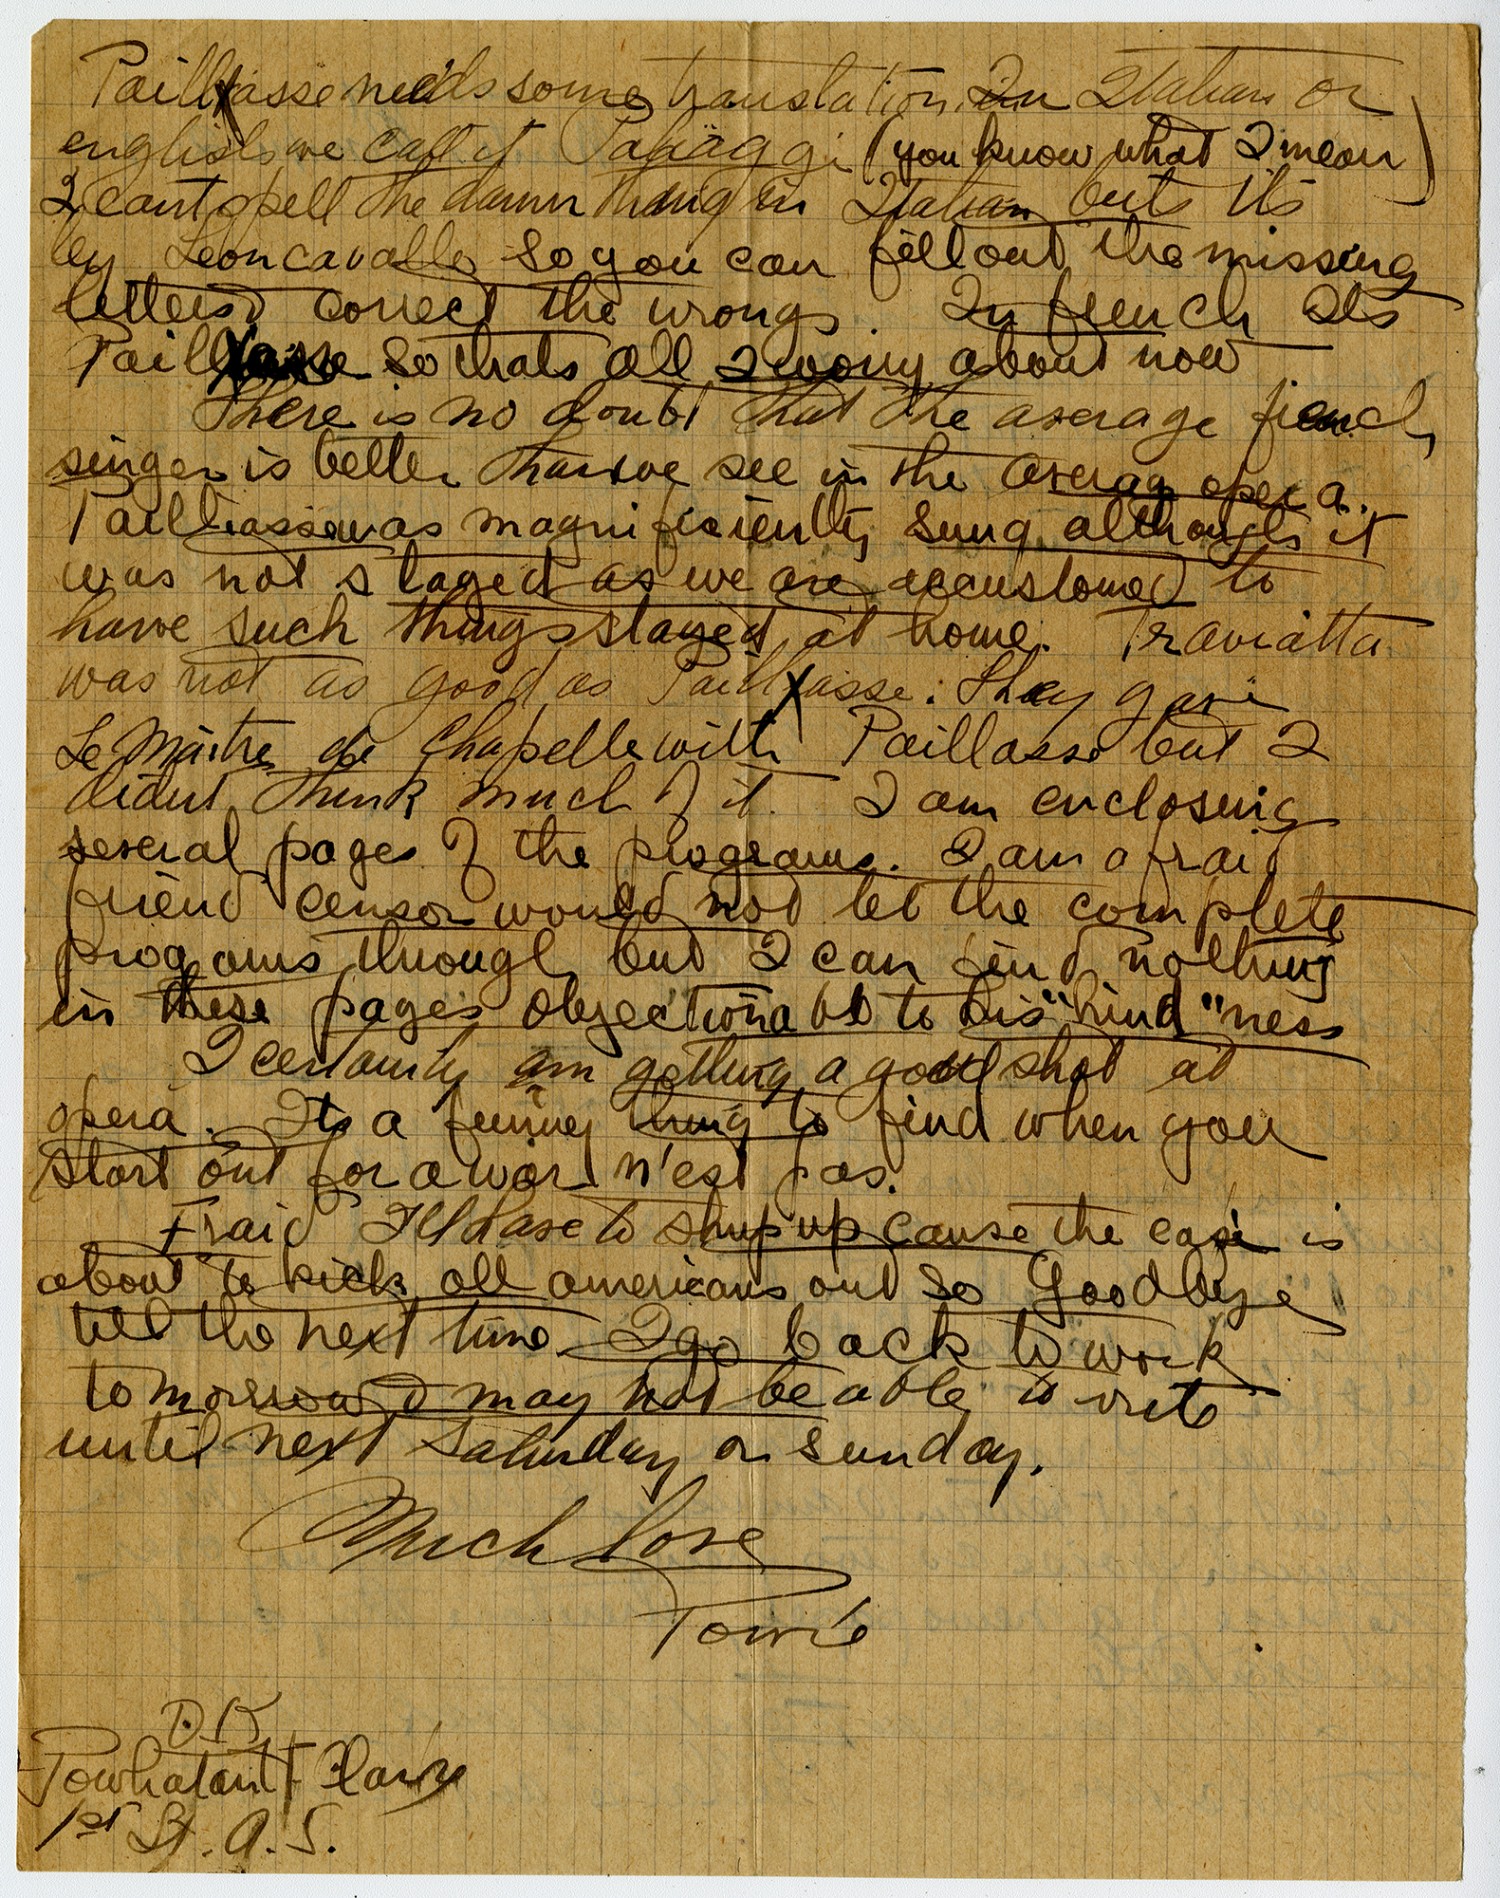 Paillasse needs some translation. In Italian or
english we call it Paliaggi (you know what I mean)
I cant spell the damn thing in Italian but its
by Leoncavallo so you can fill out the missing
letters & correct the wrongs. In french its
Paillasse so thats all I worry about now
There is no doubt that the average french
singer is better than we see in the average opera.
Paillasse was magnificiently sung although it
was not staged as we are accustomed to
have such things staged at home. Traviatta
was not as good as Paillasse. They gave
Le Maitre de Chapelle with Paillasse but I
didnt think much of it. I am enclosing
several pages of the programs. I am afraid
friend censor would not let the complete
programs through but I can find nothing
in these pages objectionable to his "hind"ness
I certainly am getting a good shot at
opera. Its a funny thing to find when you
start out for a war n'est pas.
Fraid I'll have to shup up cause the cafe is
about to kick all americans out so Goodbye
till the next time. I go back to work
tomorrow & may not be able to write
until next Saturday or Sunday.
Much love
Towie
O.K.
Powhatan
1st Lt. A.S.